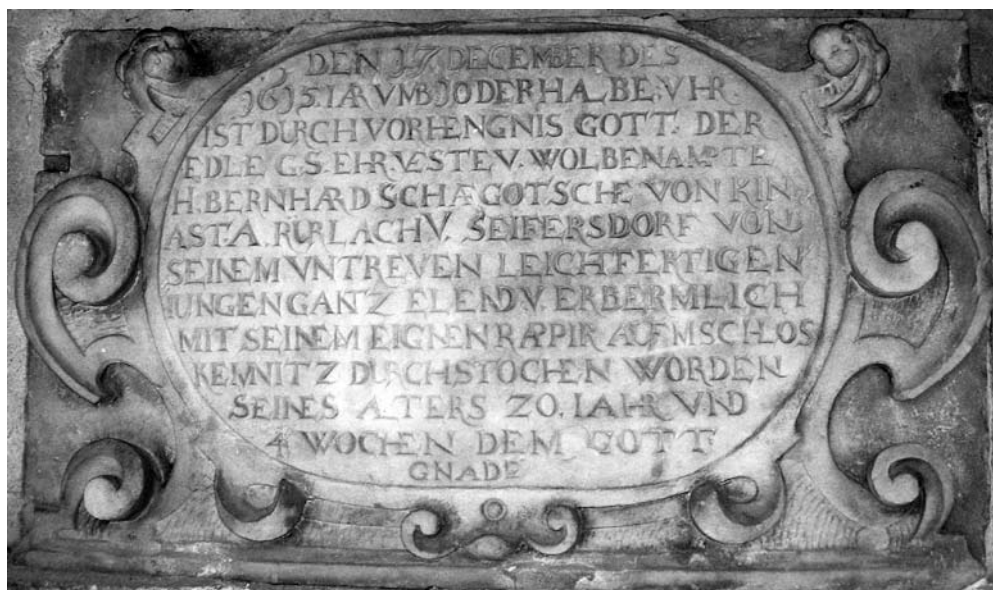 DEN 17 DECEMBER DES
1615 IAR VMB 10 DER HALBE. VHR.
IST DURCH VORHENGNIS GOTT. DER
EDLE G.S. EHR.VESTE V. WOLBENAMPTE
H. BERNHARD SCHAEGOTSCHE VON KIN
AST. A. RÜRLACH V. SEIFERSDORF VON
SEINEM VNTREVEN LEICHFERTIGEN
IUNGEN GANTZ ELEND V. ERBERMLICH
MIT SEINEM EIGNEN RAPPIR AUFM SCHLOS
KEMNITZ DURCHSTOCHEN WORDEN
SEINES ALTERS 20. IAHR VND
4 WOCHEN DEM GOTT
GNADE